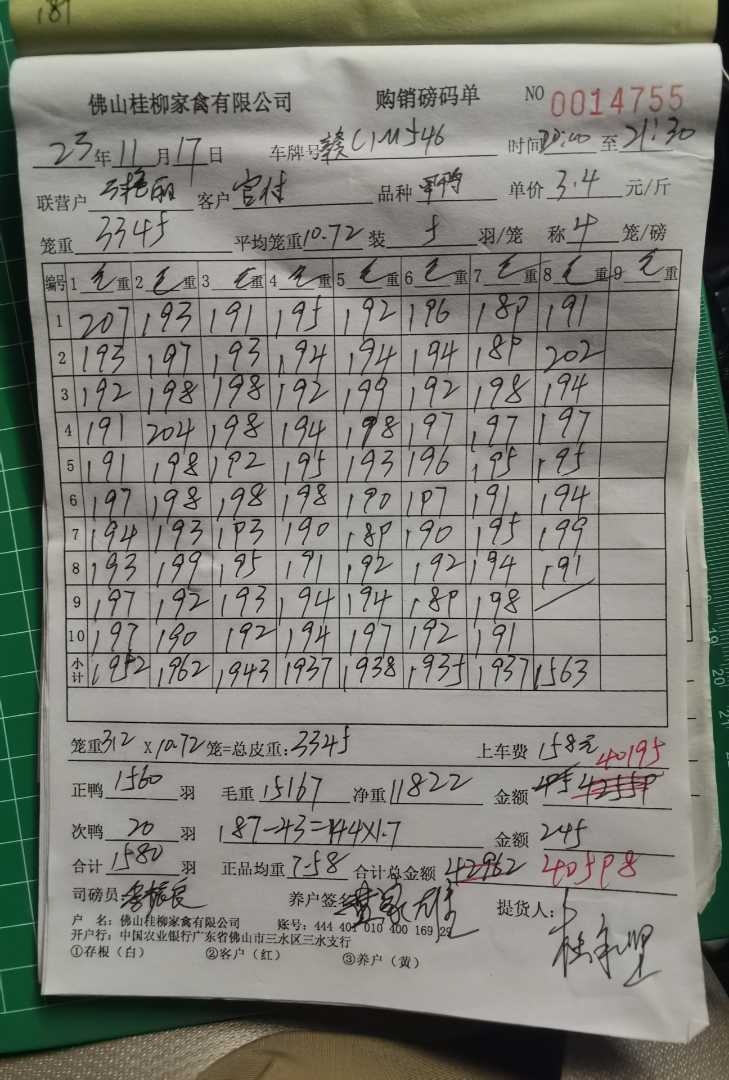 181
佛山桂柳家禽有限公司 购销磅码单 NO 0014755
23年11月17日 车牌号赣C1M546 时间20:00至21:30
联营户 丽 客户 官付 品种 鸭 单价 3.4 元/斤
笼重 3345 平均笼重10.72装 5 羽/笼 称 4 笼/磅
编号 1 毛重 2 毛重 3 毛重 4 毛重 5 毛重 6 毛重 7 毛重 8 毛重 9 毛重
1 207 193 191 195 192 196 189 191
2 193 197 193 194 194 194 189 202
3 192 198 198 192 199 192 198 194
4 191 204 198 194 198 197 197 197
5 191 198 192 195 193 196 195 195
6 197 198 198 198 190 197 191 194
7 194 193 193 190 189 190 195 199
8 193 199 195 191 192 192 194 191
9 197 192 193 194 194 189 198
10 197 190 192 194 197 192 191
小计 1952 1962 1943 1937 1938 1935 1937 1563
笼重312 X 10.72 笼=总皮重:3345 上车费 158元
40195
正鸭 1560 羽 毛重 15167 净重 11822 金额
次鸭 20 羽 187-43=144X1.7 金额 245
合计 1580 羽 正品均重 7.58 合计总金额 42962 40598
司磅员: 养户签名: 提货人:
户 名:佛山桂柳家禽有限公司 账号:444 401 010 400 169 29
开户行:中国农业银行广东省佛山市三水区三水支行
①存根(白) ②客户(红) ③养户(黄)